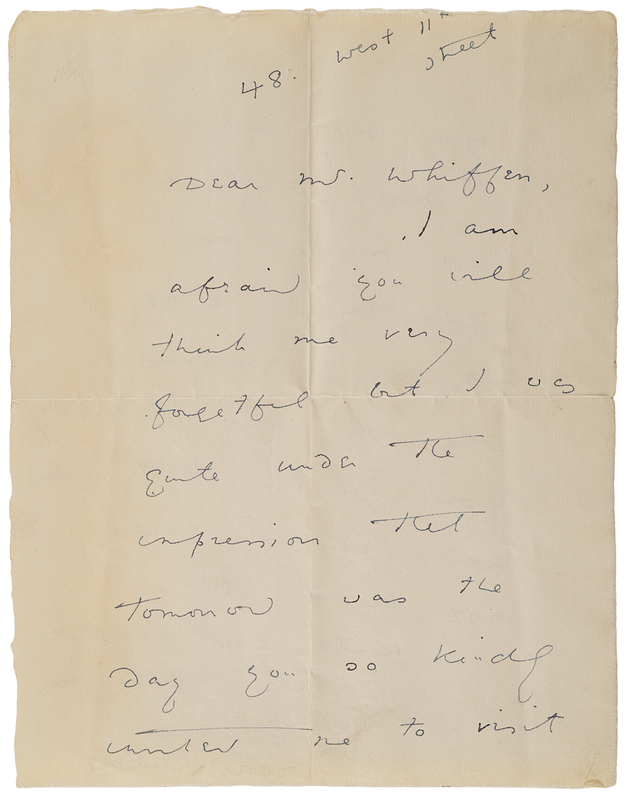 48. West 11th
Street
Dear Mr. Whiffen,
I am
afraid you will
think me very
forgetful but I was
quite under the
impression that
tomorrow was the
day you so kindly
invited me to visit